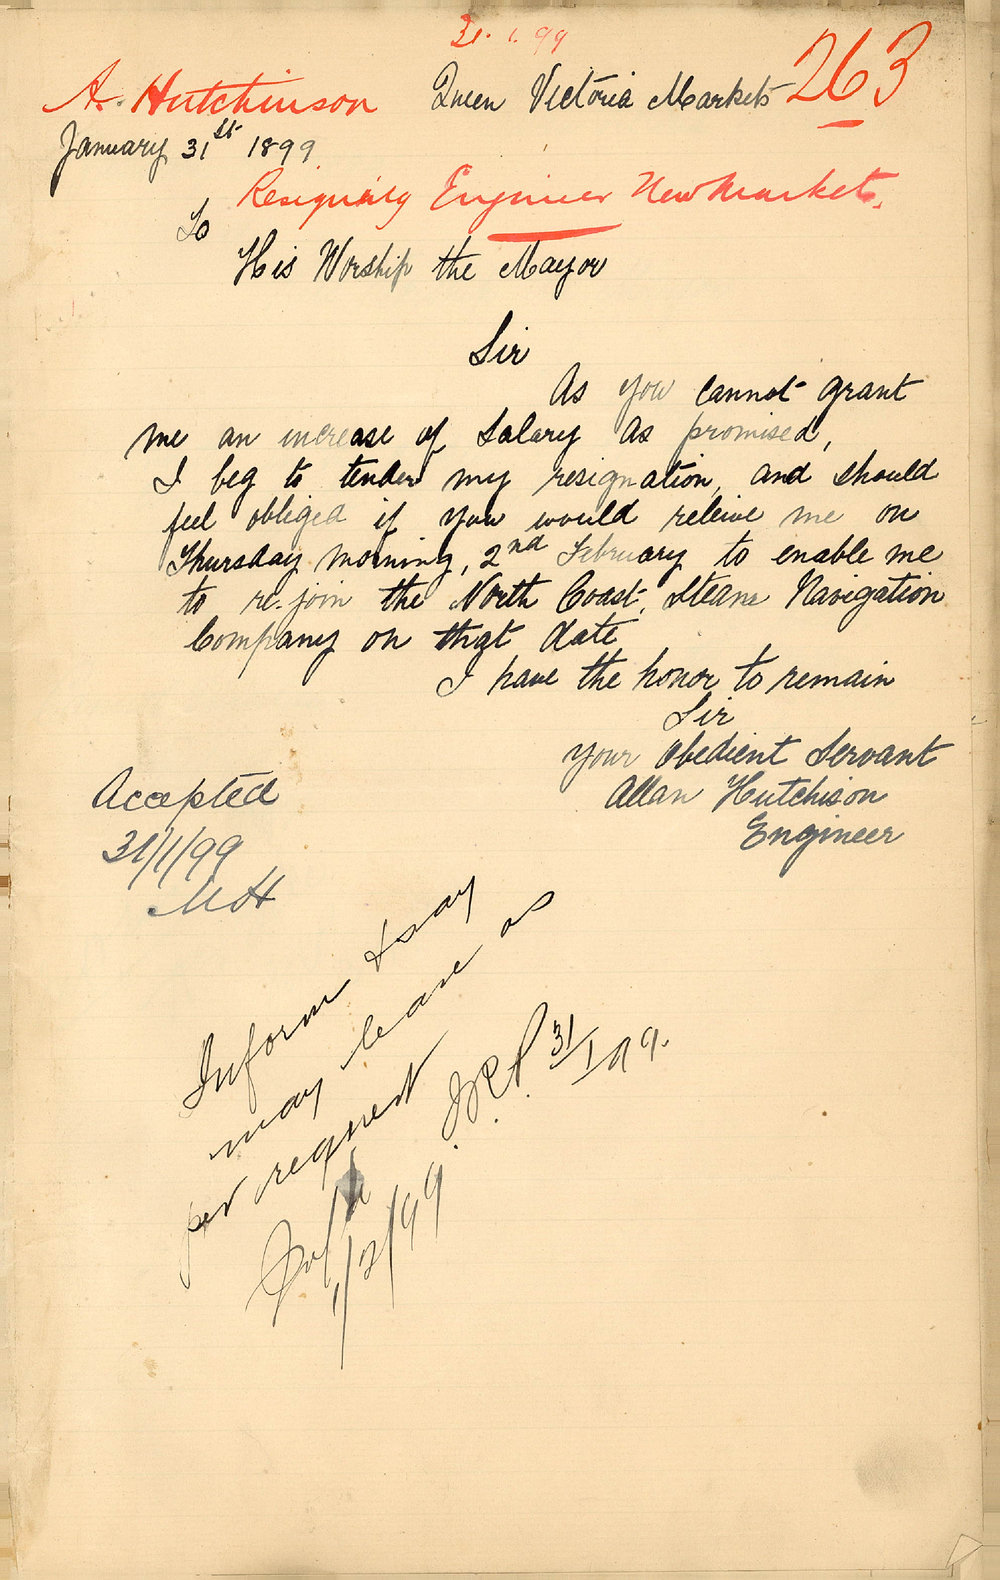 31.1.99
263
A. Hutchinson Queen Victoria Markets
January 31st 1899
Resigning Engineer New Market.
To
His Worship the Mayor
Sir
As you cannot grant
me an increase of Salary as promised,
I beg to tender my resignation, and should
feel obliged if you would releive me on
Thursday morning, 2nd February to enable me
to re-join the North Coast, Steam Navigation
Company on that date
I have the honor to remain
Sir
your Obedient Servant
Allan Hutchison
Engineer
Accepted
31/1/99
MH
Inform & say
may leave as
per request
31/1/99.
1/2/99